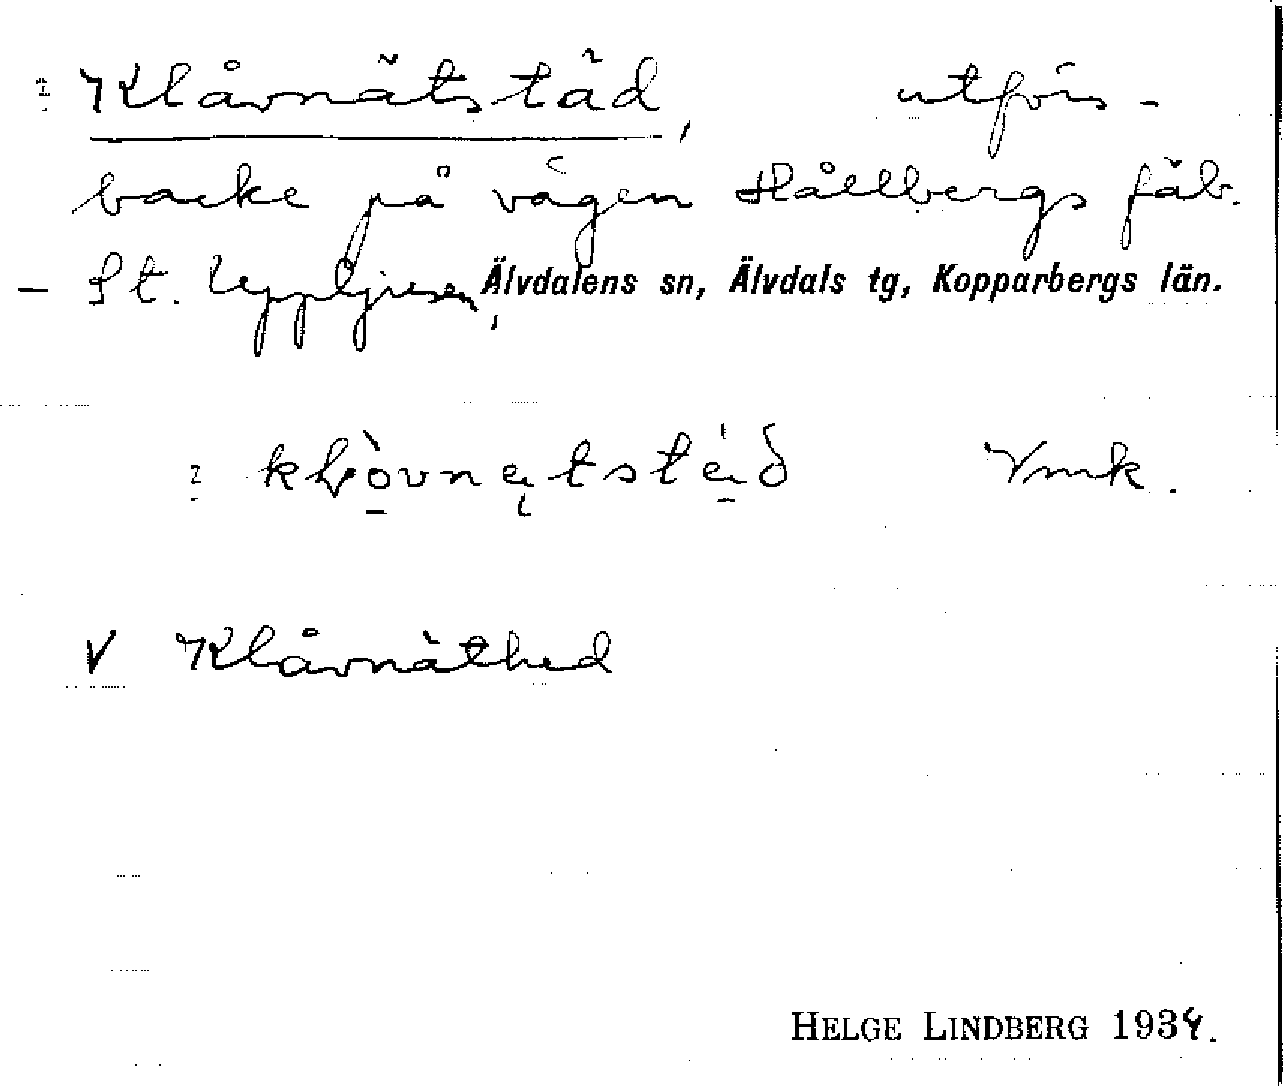 : Klåvnätstäd, utförs-
backe på vägen Hållbergs fäb.
- St. Uppljusen, Älvdalens sn, Älvdals tg, Kopparbergs län.
Vmk.
V Klåvnäthed
HELGE LINDBERG 1934.